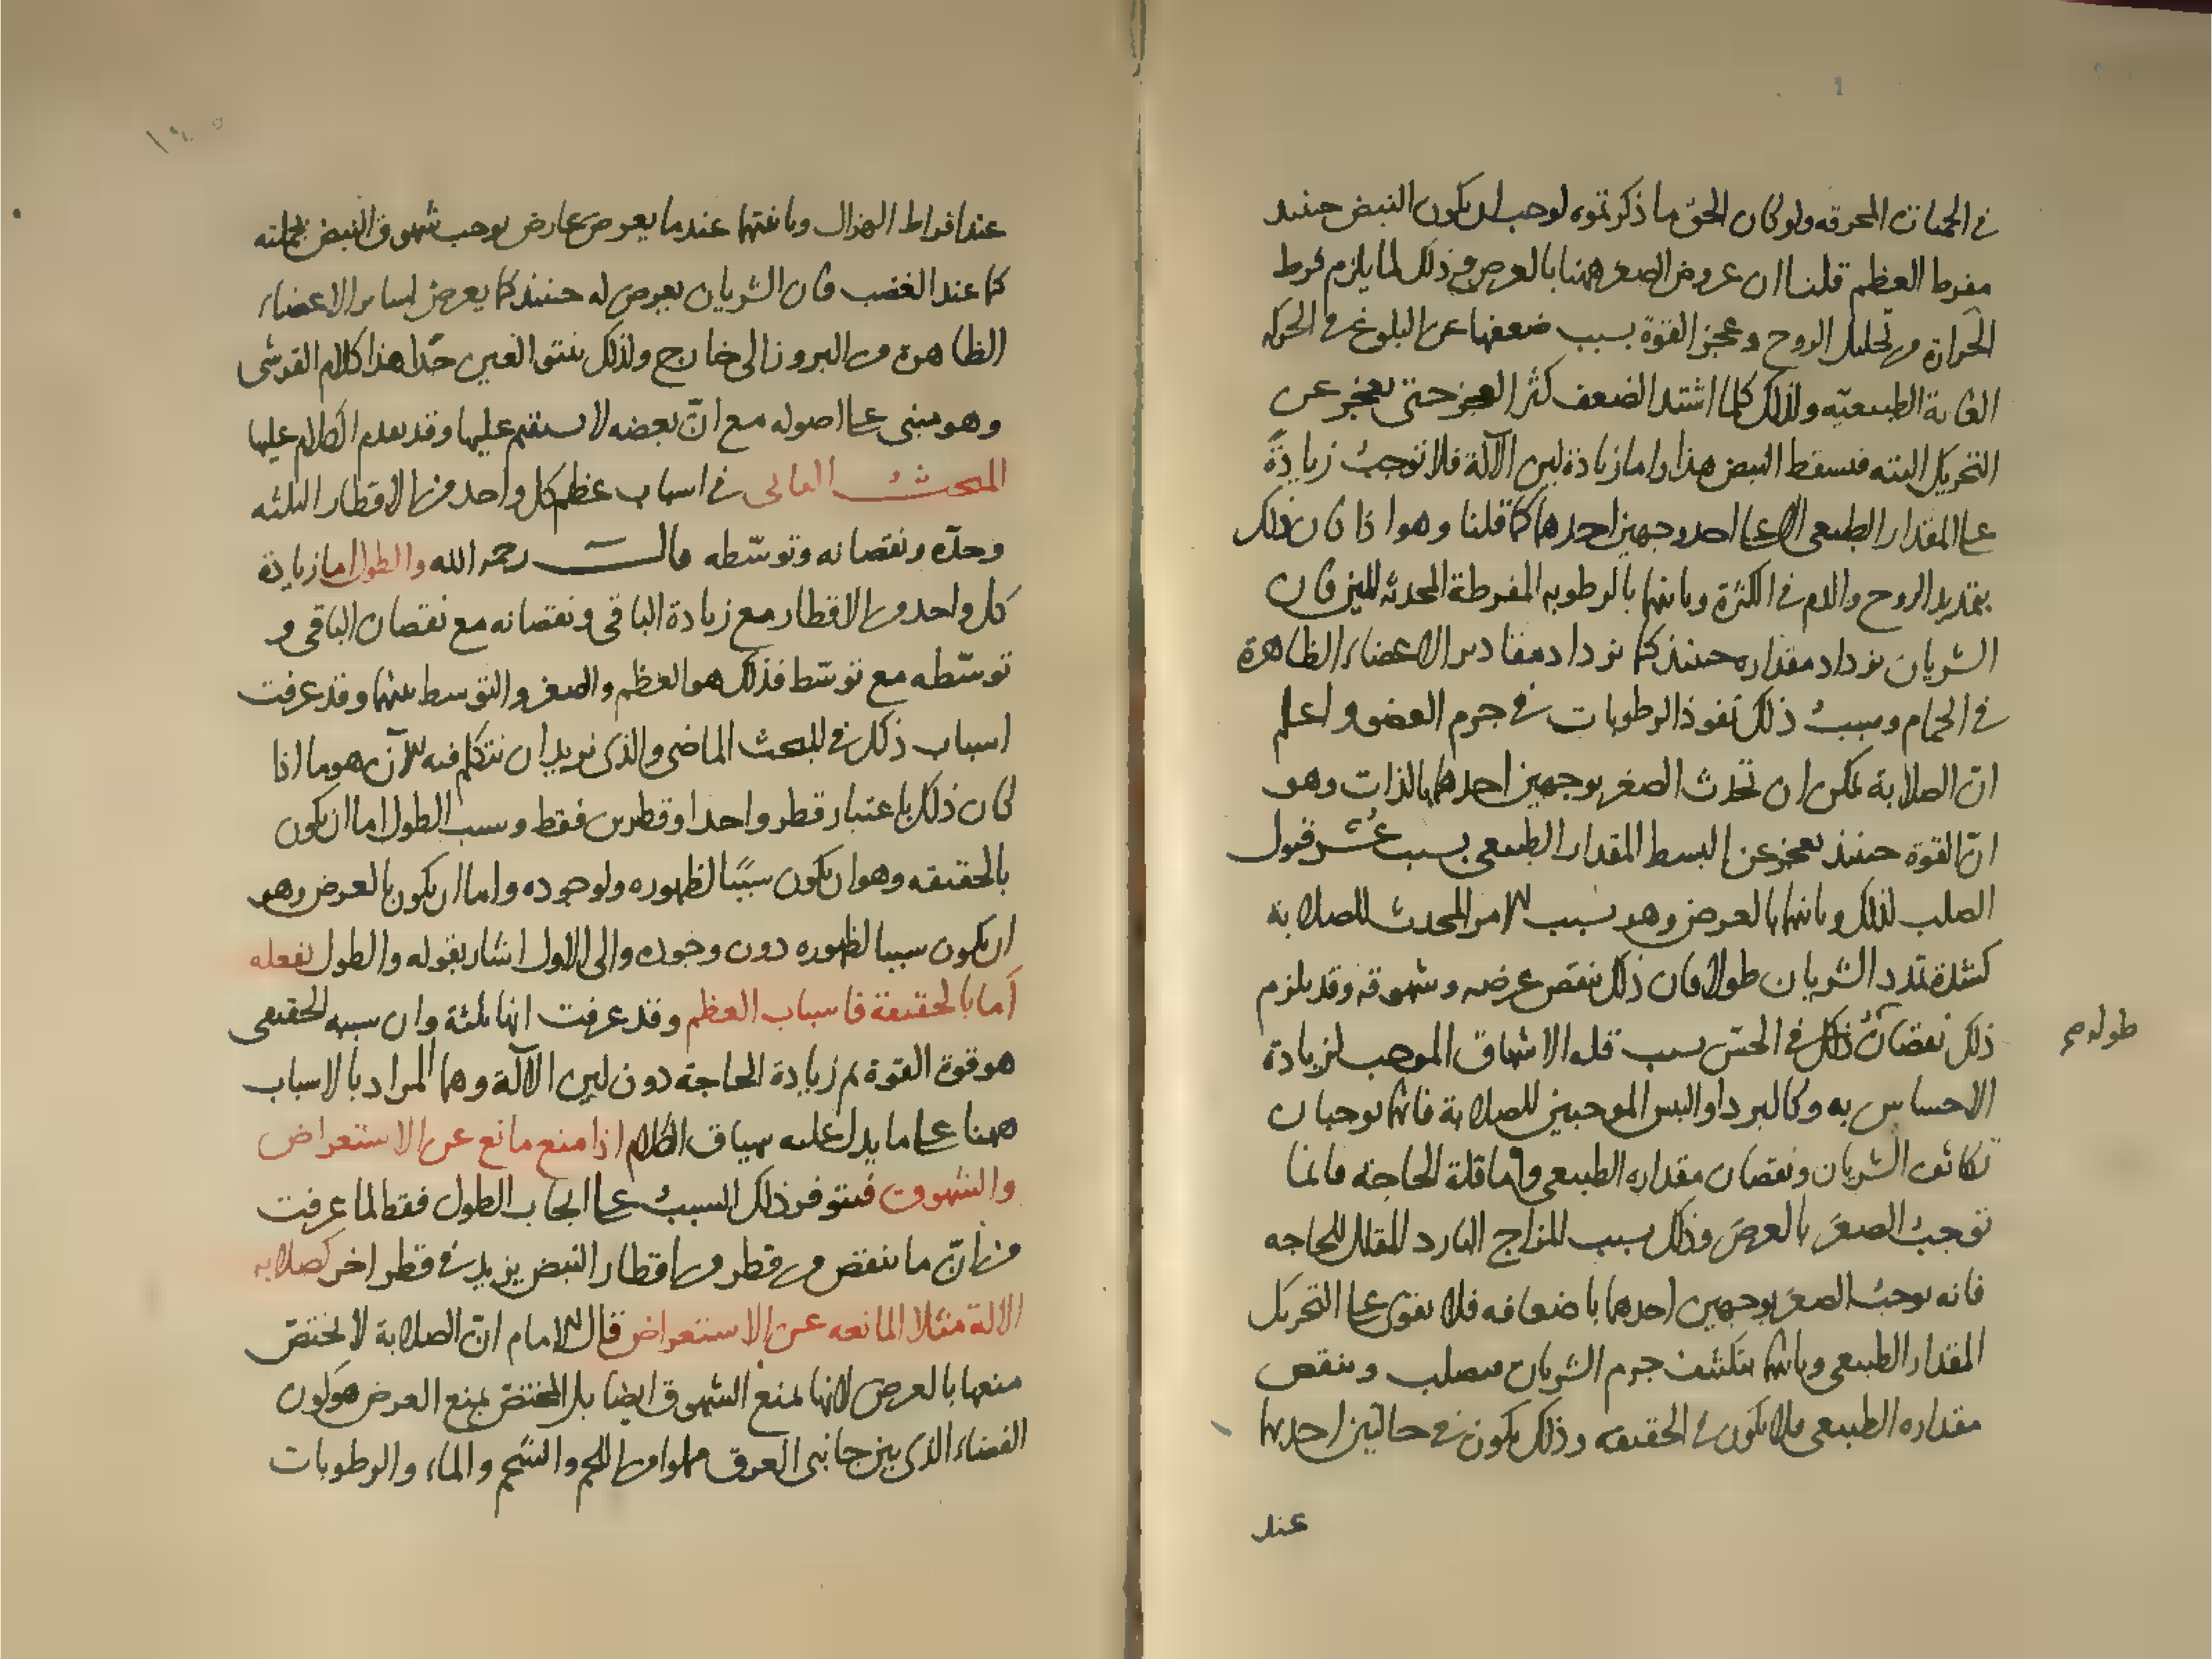 في الحميات المحرقه ولو كان الحق ما ذكرتموه لوجب ان يكون النبض حينئذ
مفرط العظم قلنا ان عروض الصغر ههنا بالعرض وذلك لما يلزم فرط
الحرارة من تحليل الروح وعجز القوة بسبب ضعفها عن البلوغ في الحركه
الغاية الطبيعيّه ولذلك كلما اشتد الضعف كثر العجز حتى تعجز عن
التحريك البته فيسقط النبض هذا واما زيادة لين الآلة فلا توجبُ زيادةً
على المقدار الطبيعى الا على احد وجهين احدهما كما قلنا وهو اذا كان ذلك
بتمديد الروح والدم في الكثرة وثانيهما بالرطوبه المفرطة المحدثه للين فان
الشريان يزداد مقداره حينئذ كما يزداد مقادير الاعضاء الظاهرة
في الحمام وسببُ ذلك نفوذ الرطوبات في جرم العضو واعلم
انّ الصلابة يمكن ان تحدث الصغر بوجهين احدهما بالذات وهو
انّ القوة حينئذ تعجز عن البسط المقدار الطبيعى بسبب عُسر قبول
الصلب لذلك وثانيهما بالعرض وهو بسبب الامر المحدث للصلابة
كشدة تمدد الشريان طولا فان ذلك ينقص عرضه وشهوقه وقد يلزم
ذلك نقصانُ ذلك في الحسّ بسبب قله الاشهاق الموجب لزيادة
طوله صح
الاحساس به وكالبرد او اليبس الموجبين للصلابة فانهما يوجبان
تكاثف الشريان ونقصان مقداره الطبيعى واما قلة الحاجة فانما
توجبُ الصغرَ بالعرضَ وذلك بسبب المزاج البارد المقلل للحاجه
فانه يوجبُ الصغرَ بوجهين احدهما باضعافه فلا يقوى على التحريك
المقدار الطبيعى وثانيهما بتكثيف جرم الشريان فيصلب وينقص
مقداره الطبيعى فلا يكون في الحقيقه وذلك يكون في حالتين احديهما
عند
عند افراط الهزال وثانيتهما عندما يعرض عارض يوجب شهوق النبض بجملته
كما عند الغضب فان الشريان يعرض له حينئذ كما يعرض لساير الاعضاء
الظاهرة من البروز الى خارج ولذلك ينتو العين جدّا هذا كلام القرشى
وهو مبنى على اصوله مع انّ بعضه لا يستقيم عليها وقد تقدم الكلام عليها
المبحث الثانى في اسباب عظم كل واحد من الاقطار الثلثه
وحدّه ونقصانه وتوسّطه قال رحمه الله والطول اما زيادة
كل واحد من الاقطار مع زيادة الباقى ونقصانه مع نقصان الباقى و
توسّطه مع توسّط فذلك هو العظم والصغر والتوسط بينهما وقد عرفت
اسباب ذلك في المبحث الماضى والذى نريد ان نتكلم فيه الآن هو ما اذا
كان ذلك باعتبار قطر واحد او قطرين فقط وسبب الطول اما ان يكون
بالحقيقه وهو ان يكون سببًا لظهوره ولوجوده واما ان يكون بالعرض وهو
ان يكون سببا لظهوره دون وجوده والى الاول اشار بقوله والطول تفعله
أما بالحقيقة فاسباب العظم وقد عرفت انها ثلثة وان سببه الحقيقى
هو قوة القوة ثم زيادة الحاجة دون لين الآلة وهما المراد بالاسباب
ههنا على ما يدل عليه سياق الكلام اذا منع مانع عن الاستعراض
والشهوق فيتوفر ذلك السببُ على ايجاب الطول فقط لما عرفت
من انّ ما ينقص من قطر من اقطار النبض يزيد في قطر اخر كصلابه
الالة مثلا المانعه عن الاستعراض قال الامام انّ الصلابة لا تختصّ
منعها بالعرض لانها تمنع الشهوق ايضا بل المختصّ بمنع العرض هو كون
الفضاء الذى بين جانبى العرق مملوا من اللحم والشحم والماء والرطوبات